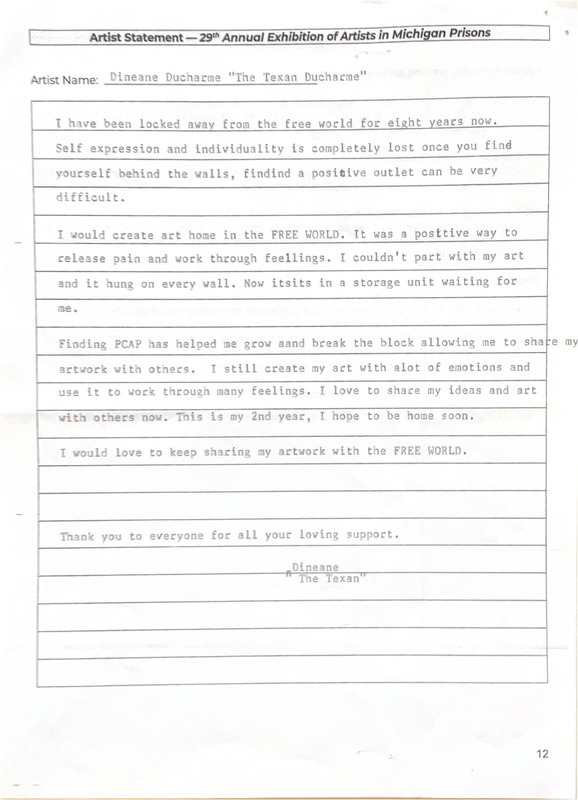 Artist Statement — 29th Annual Exhibition of Artists in Michigan Prisons
Artist Name: Dineane Ducharme "The Texan Ducharme"
I have been locked away from the free world for eight years now.
Self expression and individuality is completely lost once you find
yourself behind the walls, findind a positive outlet can be very
difficult.
I would create art home in the FREE WORLD. It was a positive way to
release pain and work through feellings. I couldn't part with my art
and it hung on every wall. Now itsits in a storage unit waiting for
me.
Finding PCAP has helped me grow aand break the block allowing me to share my
artwork with others. I still create my art with alot of emotions and
use it to work through many feelings. I love to share my ideas and art
with others now. This is my 2nd year, I hope to be home soon.
I would love to keep sharing my artwork with the FREE WORLD.
Thank you to everyone for all your loving support.
Dineane
" The Texan"
12